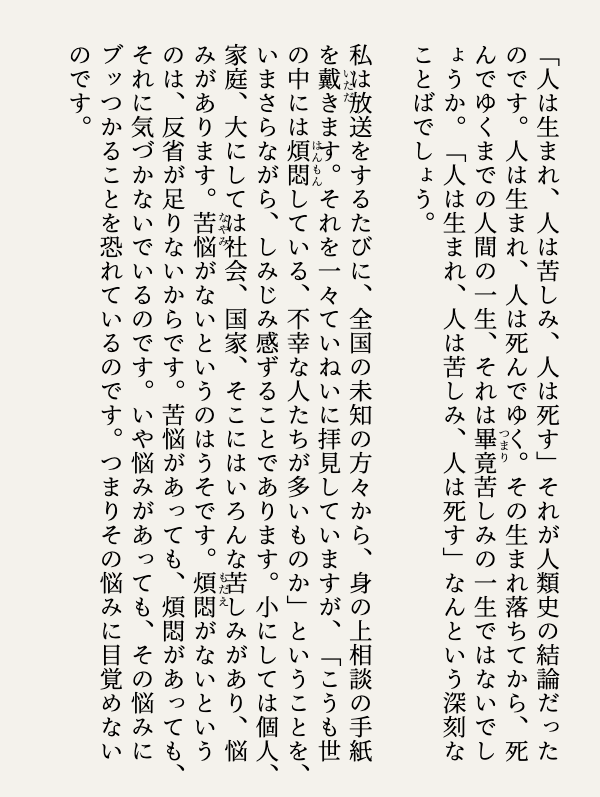 「人は生まれ、人は苦しみ、人は死す」それが人類史の結論だった
のです。人は生まれ、人は死んでゆく。その生まれ落ちてから、死
んでゆくまでの人間の一生、それは畢竟苦しみの一生ではないでし
ょうか。「人は生まれ、人は苦しみ、人は死す」なんという深刻な
ことばでしょう。
私は放送をするたびに、全国の未知の方々から、身の上相談の手紙
を戴きます。それを一々ていねいに拝見していますが、「こうも世
の中には煩悶している、不幸な人たちが多いものか」ということを、
いまさらながら、しみじみ感ずることであります。小にしては個人、
家庭、大にしては社会、国家、そこにはいろんな苦しみがあり、悩
みがあります。苦悩がないというのはうそです。煩悶がないという
のは、反省が足りないからです。苦悩があっても、煩悶があっても、
それに気づかないでいるのです。いや悩みがあっても、その悩みに
ブッつかることを恐れているのです。つまりその悩みに目覚めない
のです。